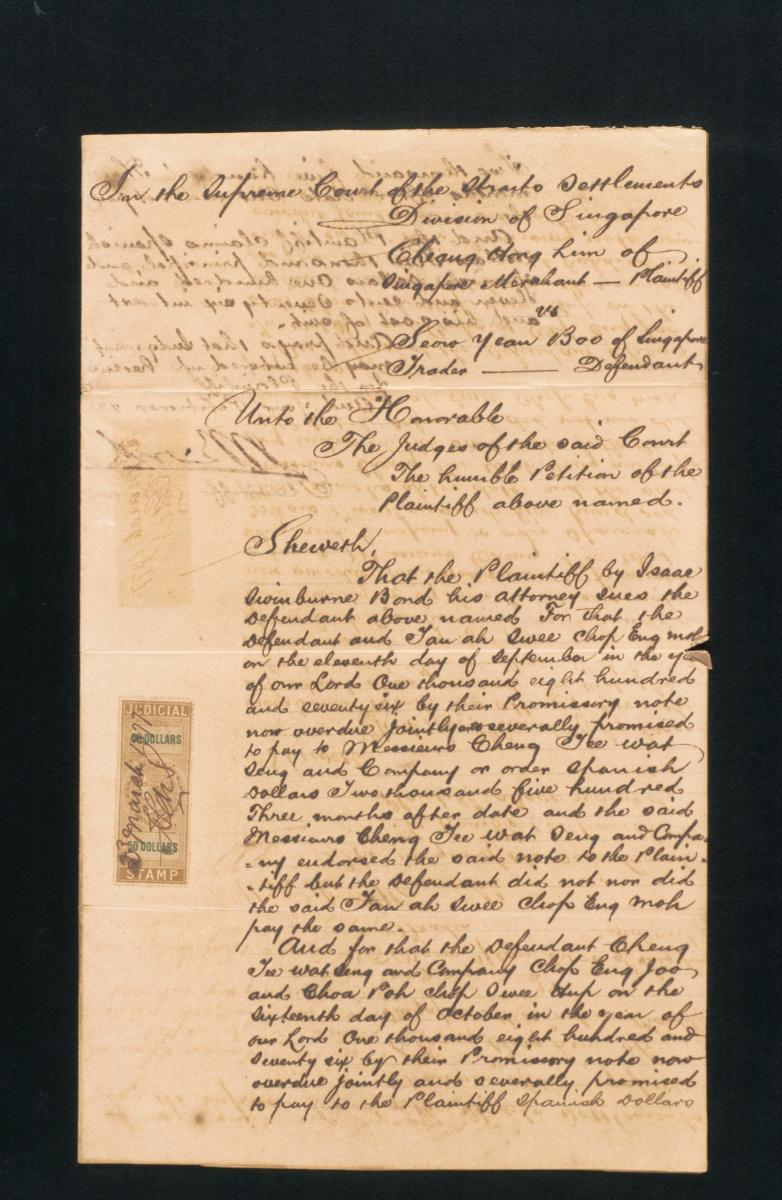 In the Supreme Court of the Straits Settlements
Division of Singapore
Cheang Hong Lim of
Singapore Merchant — Plaintiff
vs
Seow Yean Boo of Singapore
Trader —— Defendant
Unto the Honorable
The Judges of the said Court
The humble Petition of the
Plaintiff above named.
Sheweth,
That the Plaintiff by Isaac
Swinburne Bond his attorney sues the
Defendant above named For that the
Defendant and Tan ah Swee Chop Eng moh
on the eleventh day of September in the
of our Lord One thousand eight hundred
and seventy six by their Promissory note
now overdue jointly and severally promised
to pay to Messieurs Cheng Tee wat
Seng and Company or order Spanish
Dollars Two thousand five hundred
Three months after date and the said
Messieurs Cheng Tee wat Seng and Compa-
-ny endorsed the said note to the Plain-
-tiff but the Defendant did not nor did
the said Tan ah Swee Chop Eng moh
pay the same.
And for that the Defendant Cheng
Tee wat Seng and Company Chop Eng Joo
and Choa Poh Chop Swee Hup on the
Sixteenth day of October in the year of
our Lord One thousand eight hundred and
Seventy six by their Promissory note now
overdue jointly and severally promised
to pay to the Plaintiff Spanish Dollars
JUDICIAL
50 DOLLARS
March
50 DOLLARS
STAMP